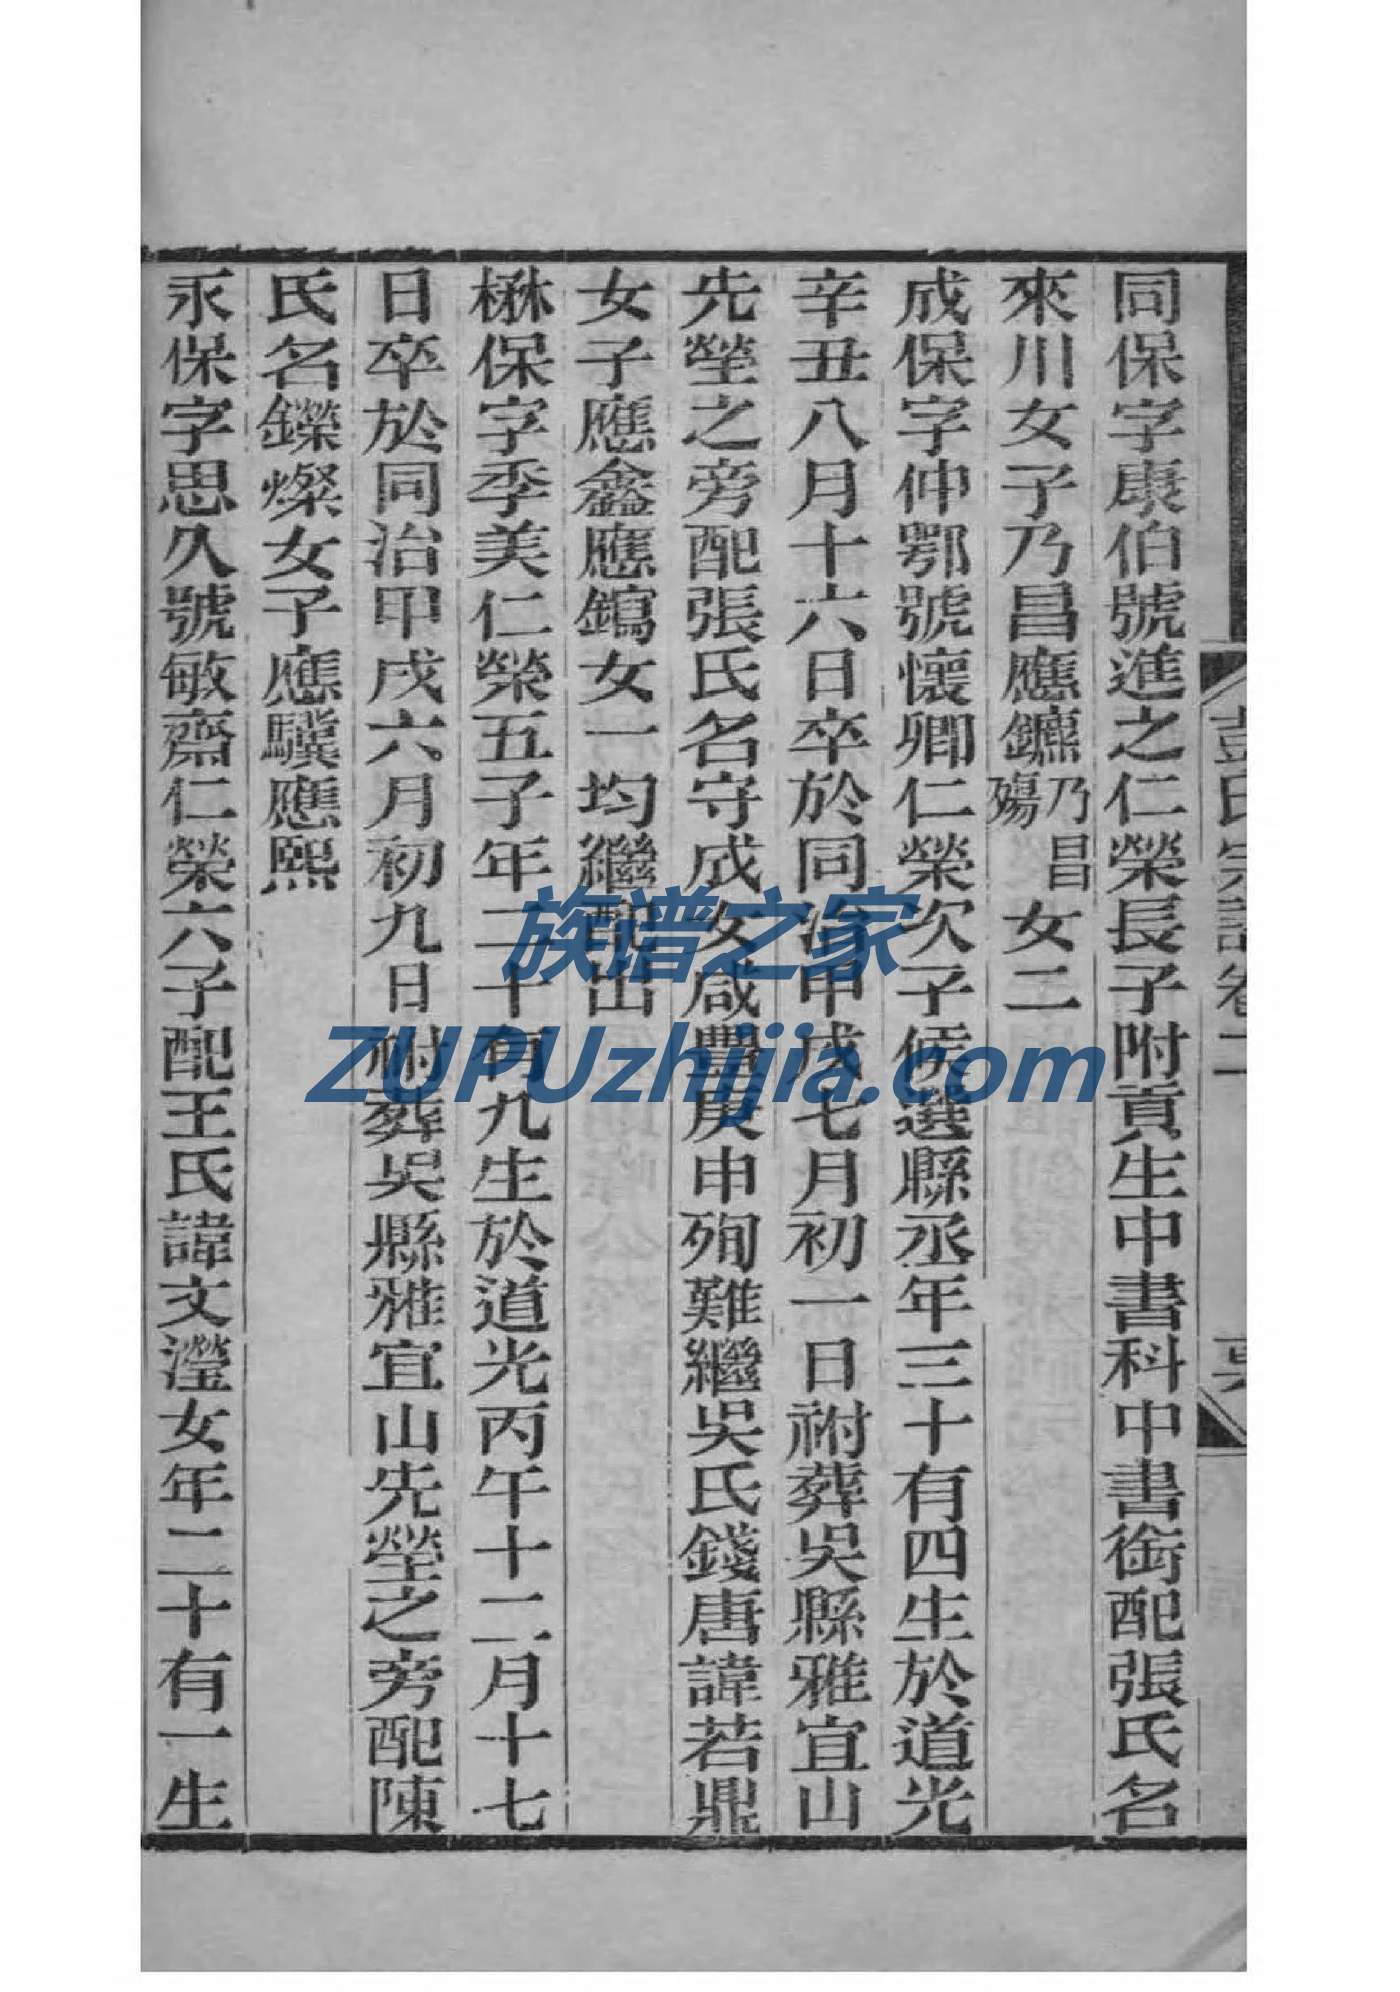 彭氏宗譜卷二
同保字康伯號進之仁榮長子附貢生中書科中書銜配張氏名
來川女子乃昌應鑣乃昌殤女二
成保字仲鄂號懷卿仁榮次子候選縣丞年三十有四生於道光
辛丑八月十六日卒於同治甲戌七月初一日祔葬吳縣雅宜山
先塋之旁配張氏名守成女咸豐庚申殉難繼吳氏錢唐諱若鼎
女子應鑫應鎢女一均繼配出
楙保字季美仁榮五子年二十有九生於道光丙午十二月十七
日卒於同治甲戌六月初九日祔葬吳縣雅宜山先塋之旁配陳
氏名鑅燦女子應驥應熙
永保字思久號敏齋仁榮六子配王氏諱文瀅女年二十有一生
族谱之家
ZUPUzhijia.com